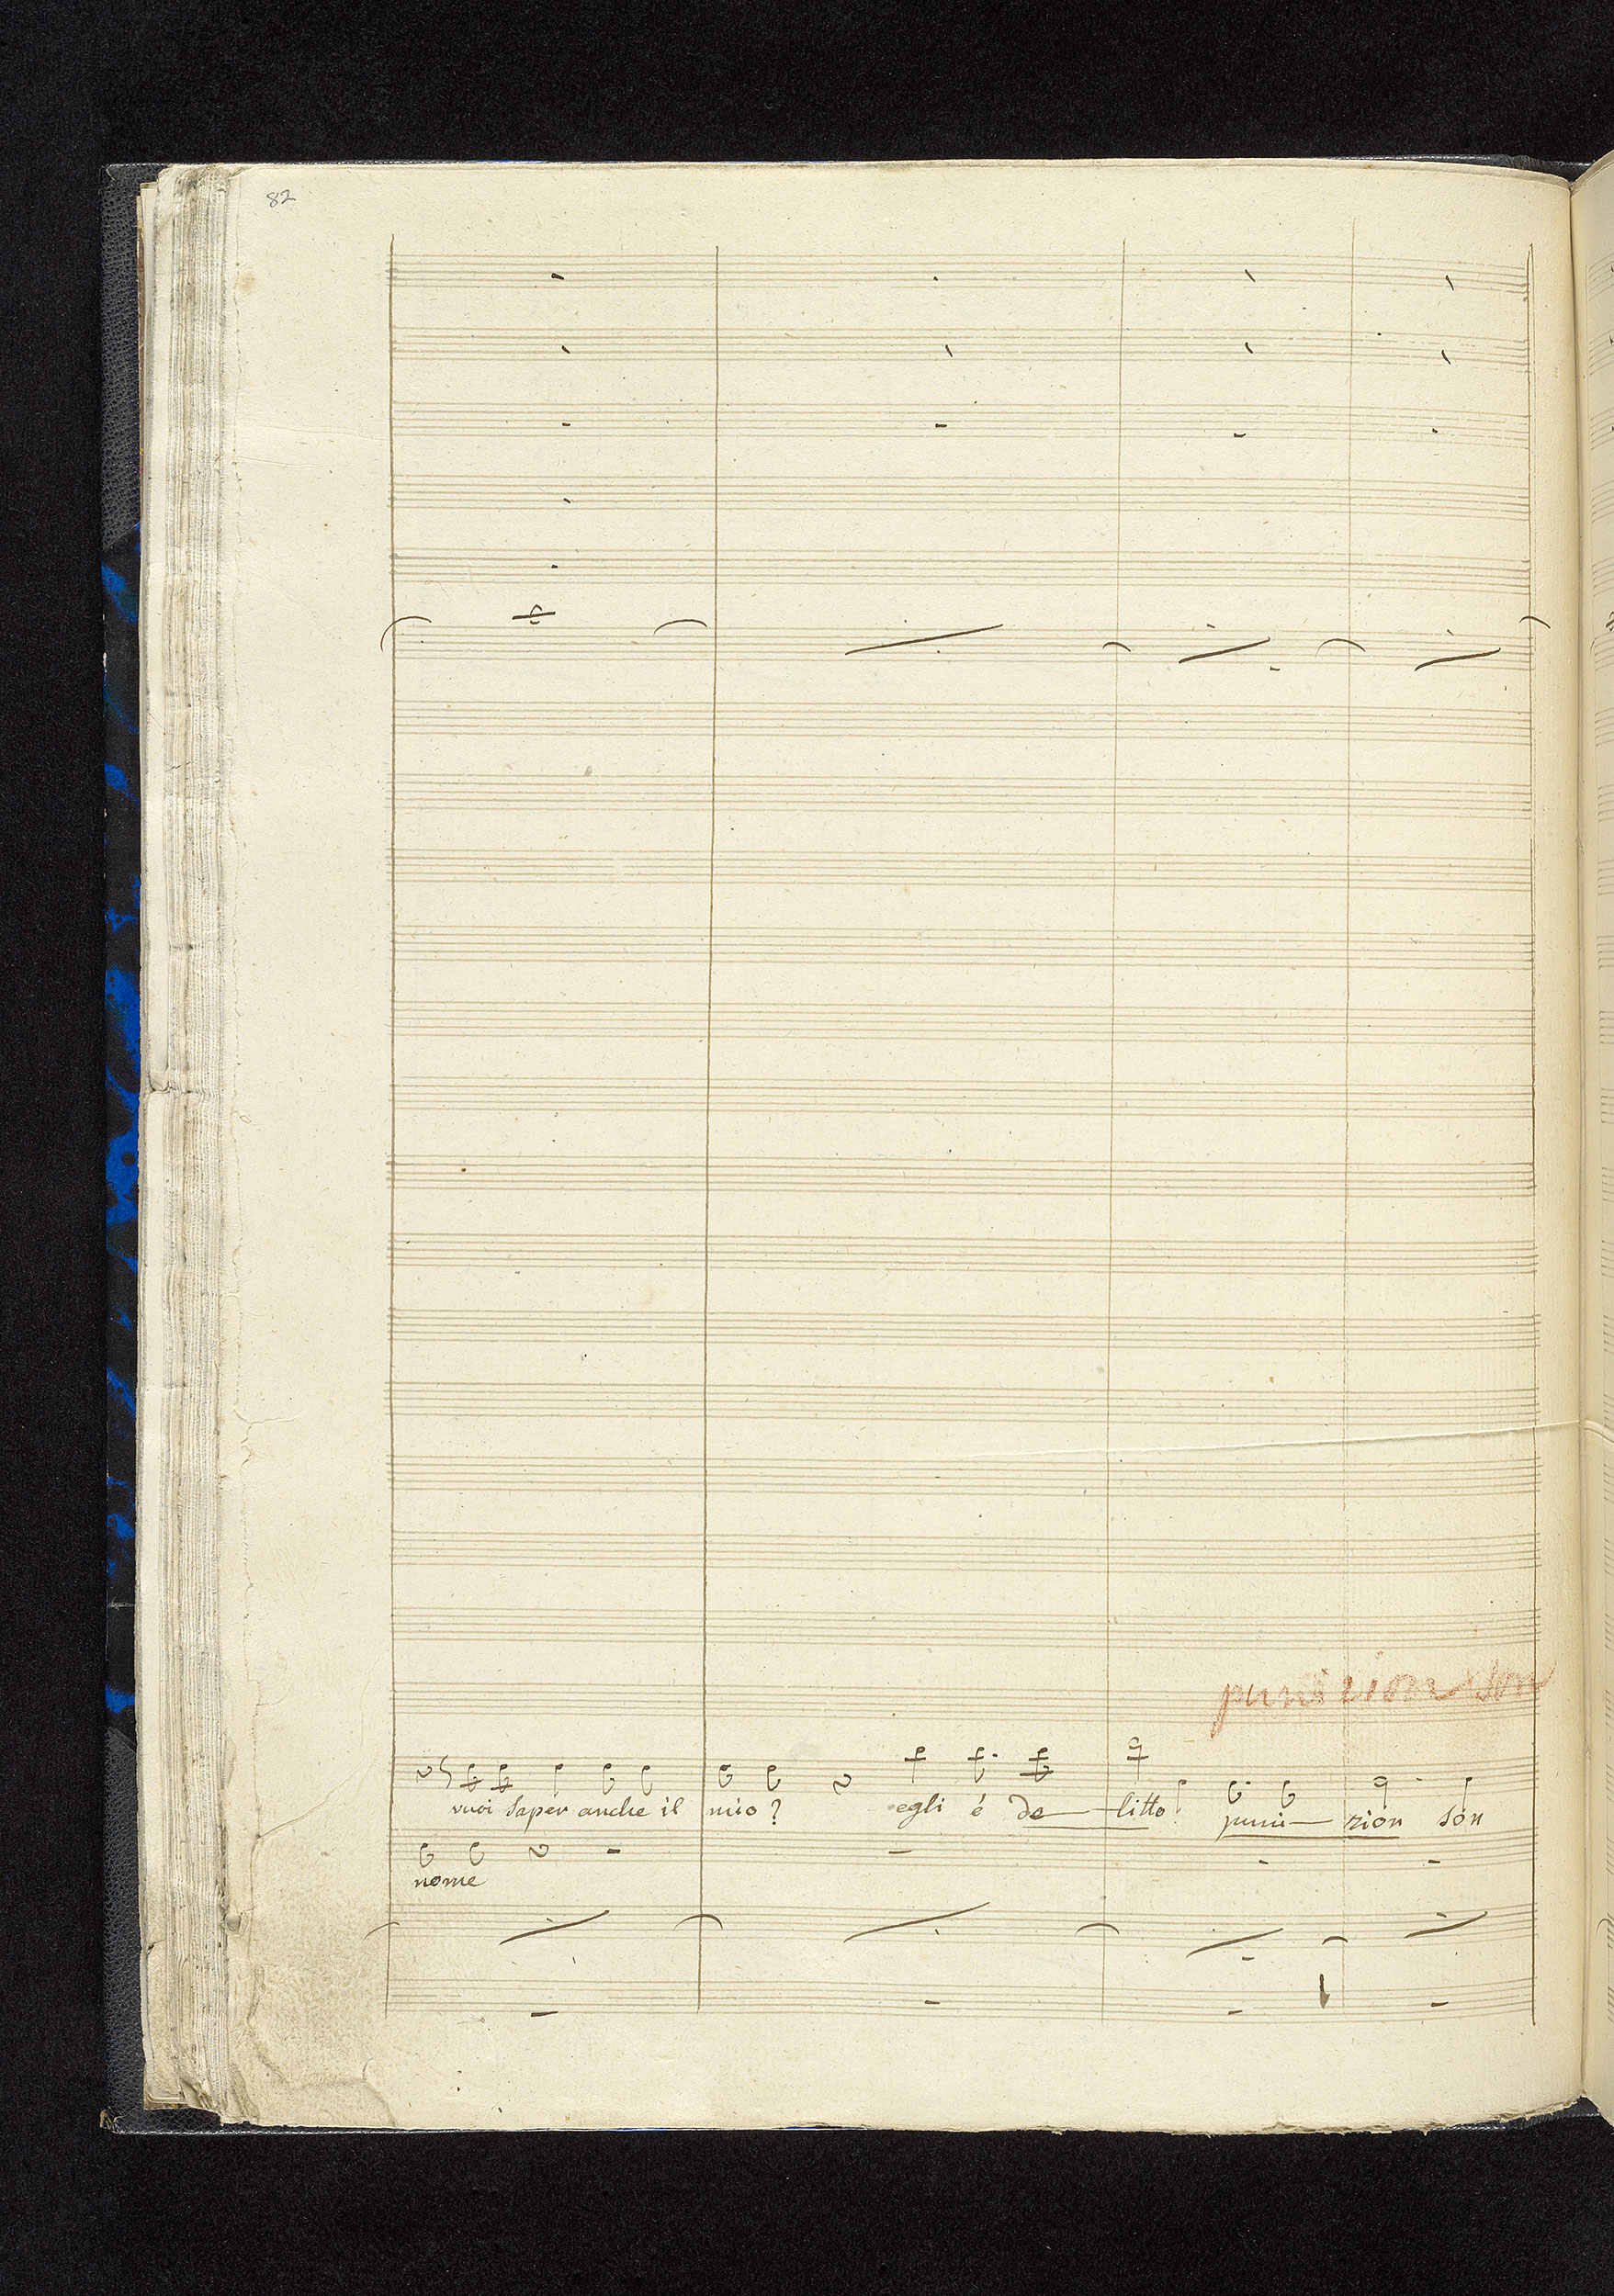 82
punizion son
vuoi saper anche il mio? egli é de—litto puni—zion son
nome